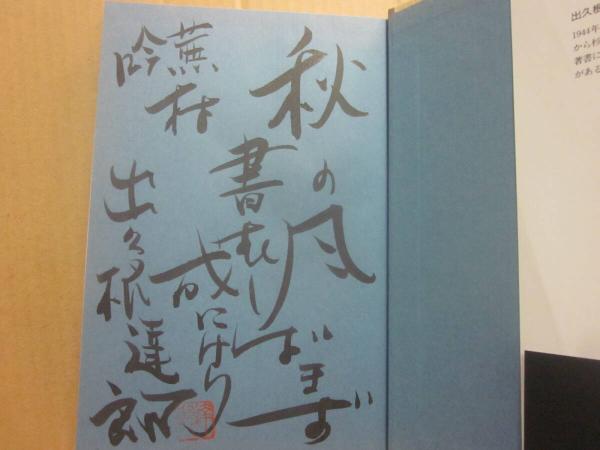 秋の風
書むしばまず
成にけり
蕪村
吟
出久根達郎
出久根
1944年
から
著書に
がある